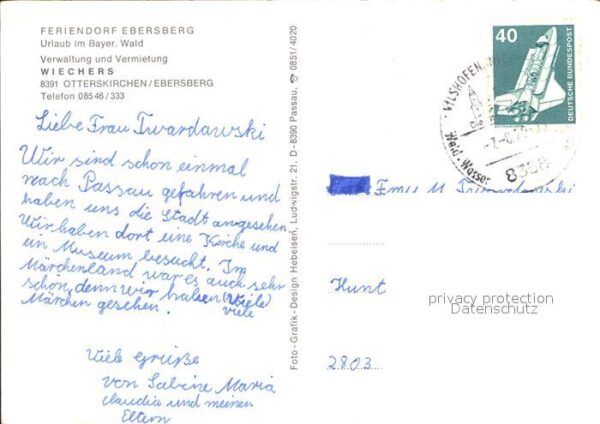 FERIENDORF EBERSBERG
Urlaub im Bayer. Wald
Verwaltung und Vermietung
WIECHERS
8391 OTTERSKIRCHEN/EBERSBERG
Telefon 08546/333
Liebe Frau Twardawski
Wir sind schon einmal
nach Passau gefahren und
haben uns die Stadt angesehen
Wir haben dort eine Kirche und
ein Museum besucht. Im
Märchenland war es auch sehr
schön, denn wir haben (Viele)
viele
Märchen gesehen.
Viele Grüße
von Sabine Maria
claudia und meinen
Eltern
Foto-Grafik-Design Hebeisen, Ludwigstr. 21, D-8390 Passau, ✆ 0851/4020
40
DEUTSCHE BUNDESPOST
VILSHOFEN
Wald · Wasser
8358
Frau M Twardawski
Hunt
2803
privacy protection
Datenschutz